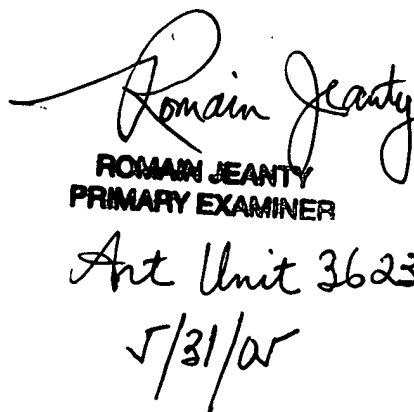 Romain Jeanty
ROMAIN JEANTY
PRIMARY EXAMINER
Art Unit 3623
5/31/05